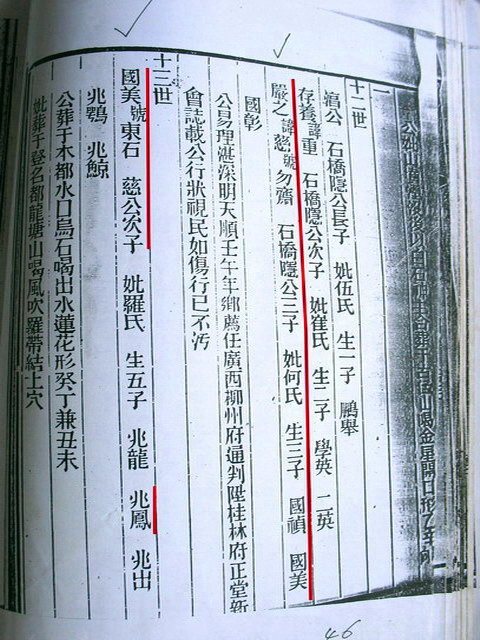 山喝金星開口形
十二世
公 石橋隱公長子 妣伍氏 生一子 鵬舉
存養諱重 石橋隱公次子 妣崔氏 生二子 學英 二英
嚴之諱慈號勿齋 石橋隱公三子 妣何氏 生三子 國禎 國美
國彰
公易理湛深明天順壬午年鄉薦任廣西柳州府通判陞桂林府正堂新
會誌載公行狀視民如傷行已不污
十三世
國美號東石 慈公次子 妣羅氏 生五子 兆龍 兆鳳 兆出
兆鶚 兆鯨
公葬于木都水口烏石喝出水蓮花形癸丁兼丑未
妣葬于登名都龍塘山喝風吹羅帶結上穴
46